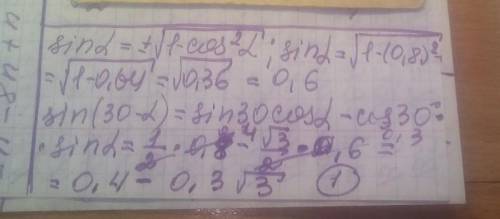 sinα = ±√1-cos²α ; sinα = √1-(0,8)² =
= √1-0,64 = √0,36 = 0,6
sin(30-α) = sin30 cosα - cos30·
· sinα = 1/2 · 0,8 - √3/2 · 0,6 =
= 0,4 - 0,3√3 1